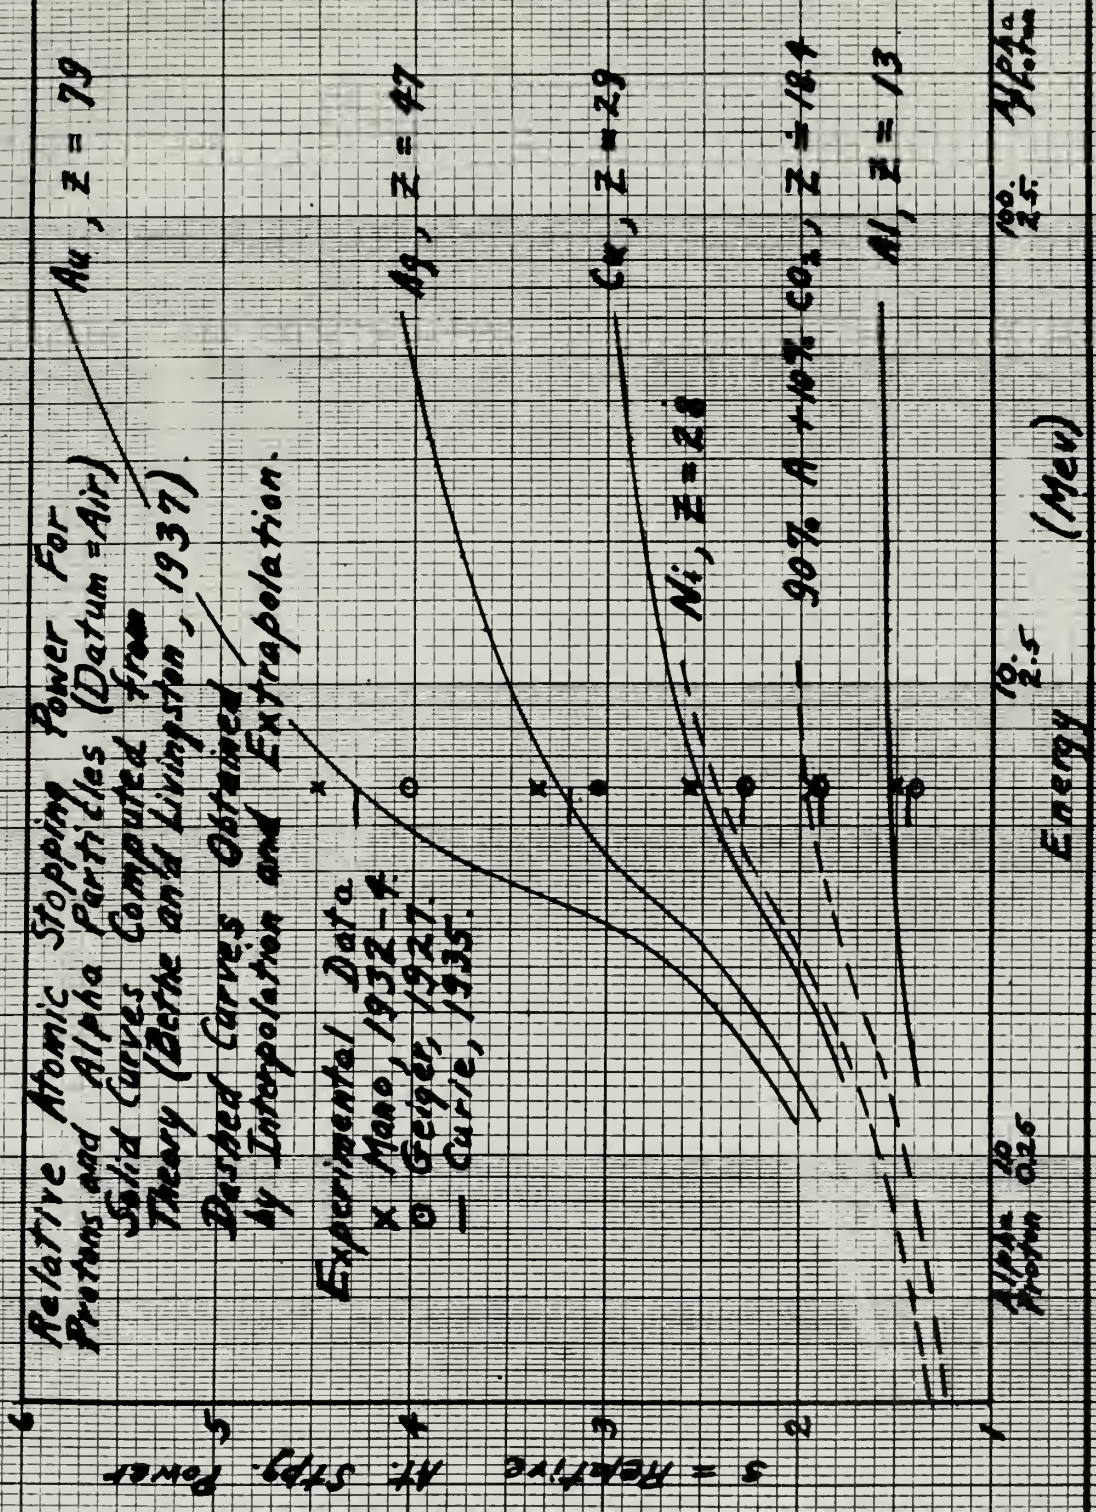 Relative Atomic Stopping Power For
Protons and Alpha Particles (Datum = Air)
Solid Curves Computed from
Theory (Bethe and Livingston, 1937).
Dashed Curves Obtained
by Interpolation and Extrapolation.
Experimental Data
x Mano, 1932-4.
⊙ Geiger, 1927.
— Curie, 1935.
Au, Z = 79
Ag, Z = 47
Cu, Z = 29
Ni, Z = 28
90% A + 10% CO₂, Z = 18.4
Al, Z = 13
6
5
4
3
2
1
s = Relative At. Stpg. Power
Alpha 1.0 10. 100. Alpha
Proton 0.25 2.5 25. Proton
Energy (Mev)